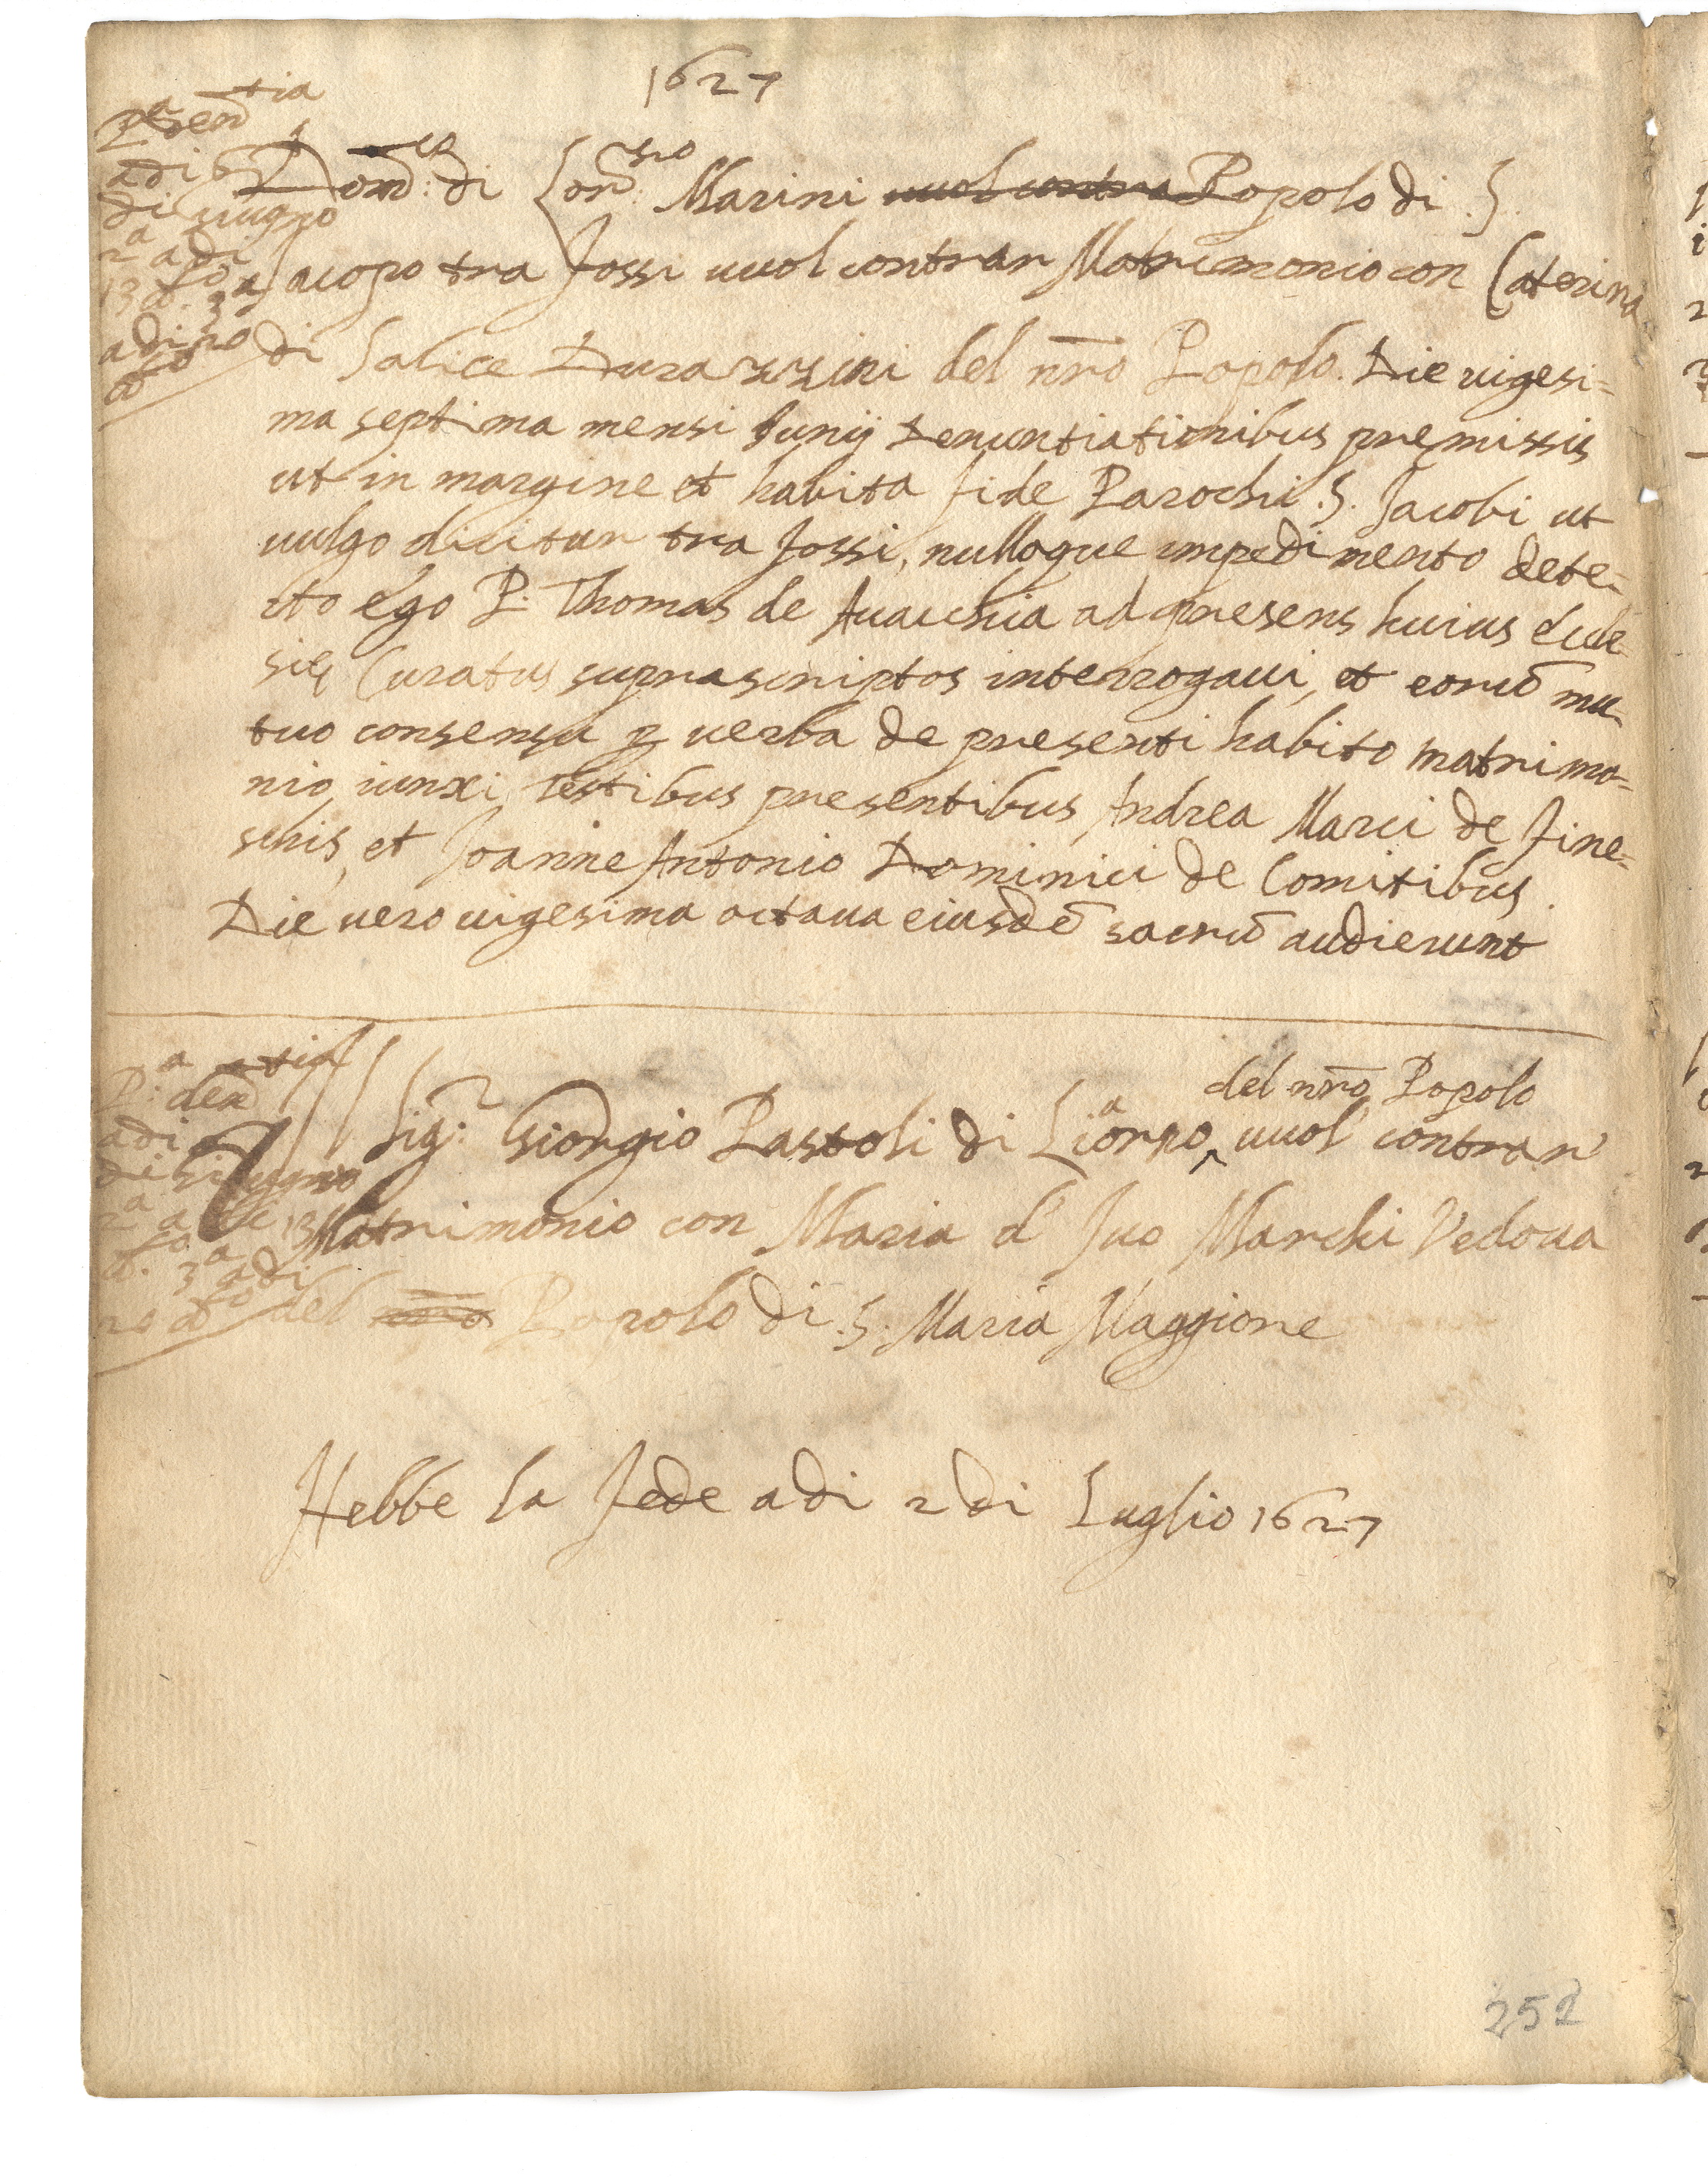 1627
P.a den.tia
adi 6
di Giugno
2a adi
13 d.o 3a
adi 20
d.o
Dom.co di Lor.zo Marini vuol contra Popolo di .S.
Jacopo tra fossi vuol contrar Matrimonio con Caterina
di Salice Durazzini del nro Popolo. Die vigesi=
ma septima mensi Iunij denuntiationibus premissis
ut in margine et habita fide Parochi .S. Jacobi ut
vulgo dicitur tra fossi, nulloque impedimento dete=
cto ego P. Thomas de Avacchia ad presens huius eccle-
sie Curatus suprascriptos interrogavi, et eorū mu-
tuo consensu p verba de presenti habito matrimo=
nio iunxi, testibus presentibus Andrea Marci de fine=
schis, et Joanne Antonio Dominici de Comitibus.
Die vero vigesima octava eiusdē sacrū audierunt
P.a den.tia
adi
di Giugno
2a adi 13
d.o 3a adi
20 d.o
del nro Popolo
Il Sig.r Giorgio Pastoli di vuol contrar
Matrimonio con Maria d' Ivo Marchi Vedova
del nro Popolo di .S. Maria Maggiore
Hebbe la fede adi 2 di Luglio 1627
252